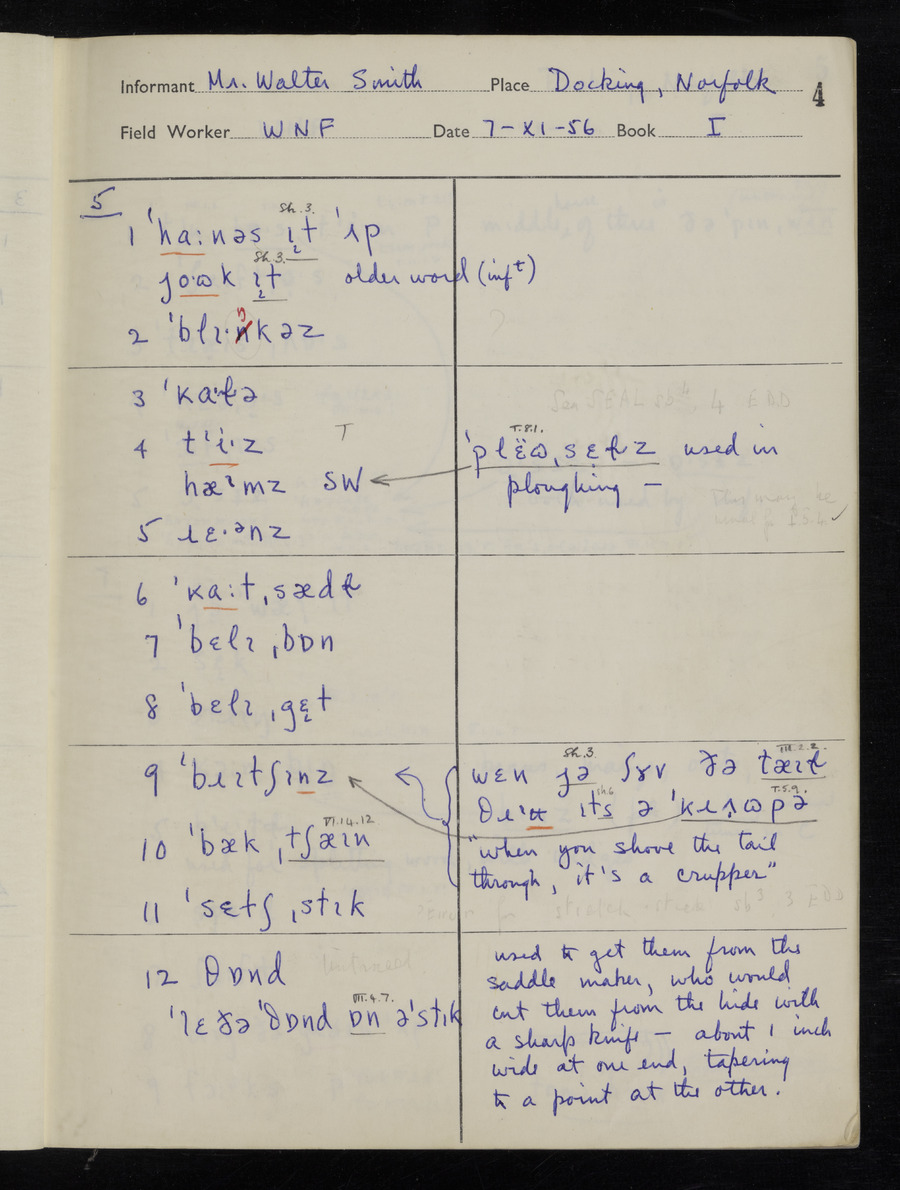 Informant Mr. Walter Smith Place Docking, Norfolk 4
Field Worker W N F Date 7-XI-56 Book I
5
Sh. 3.
1 ˈhaːnəs ɪt ˈɹp
Sh. 3.
joωk ɪt older word (infᵗ)
2 ˈblɪ·ŋkəz
3 ˈkɑ·ɫə
4 tʳi·z T
hæᵊmz SW
5 ɹɛ·ᵊnz
T.8.1.
ˈplëω ˌsɛɫz used in
ploughing —
6 ˈkaːt ˌsædɫ
7 ˈbɛlɪ ˌbɒn
8 ˈbɛlɪ ˌgɛt
9 ˈbɹɪtʃɪnz
VI.14.12
10 ˈbæk ˌtʃæɪn
11 ˈsɛtʃ ˌstɪk
Sh. 3 III.2.2.
wɛn jə ʃɤv ðə tæɪɫ
Sh.6 T.5.9.
ɪts ə
"when you shove the tail
through, it's a crupper"
12 θɒnd
VII.4.7.
ɒn əˈstɪk
used to get them from the
saddle maker, who would
cut them from the hide with
a sharp knife — about 1 inch
wide at one end, tapering
to a point at the other.